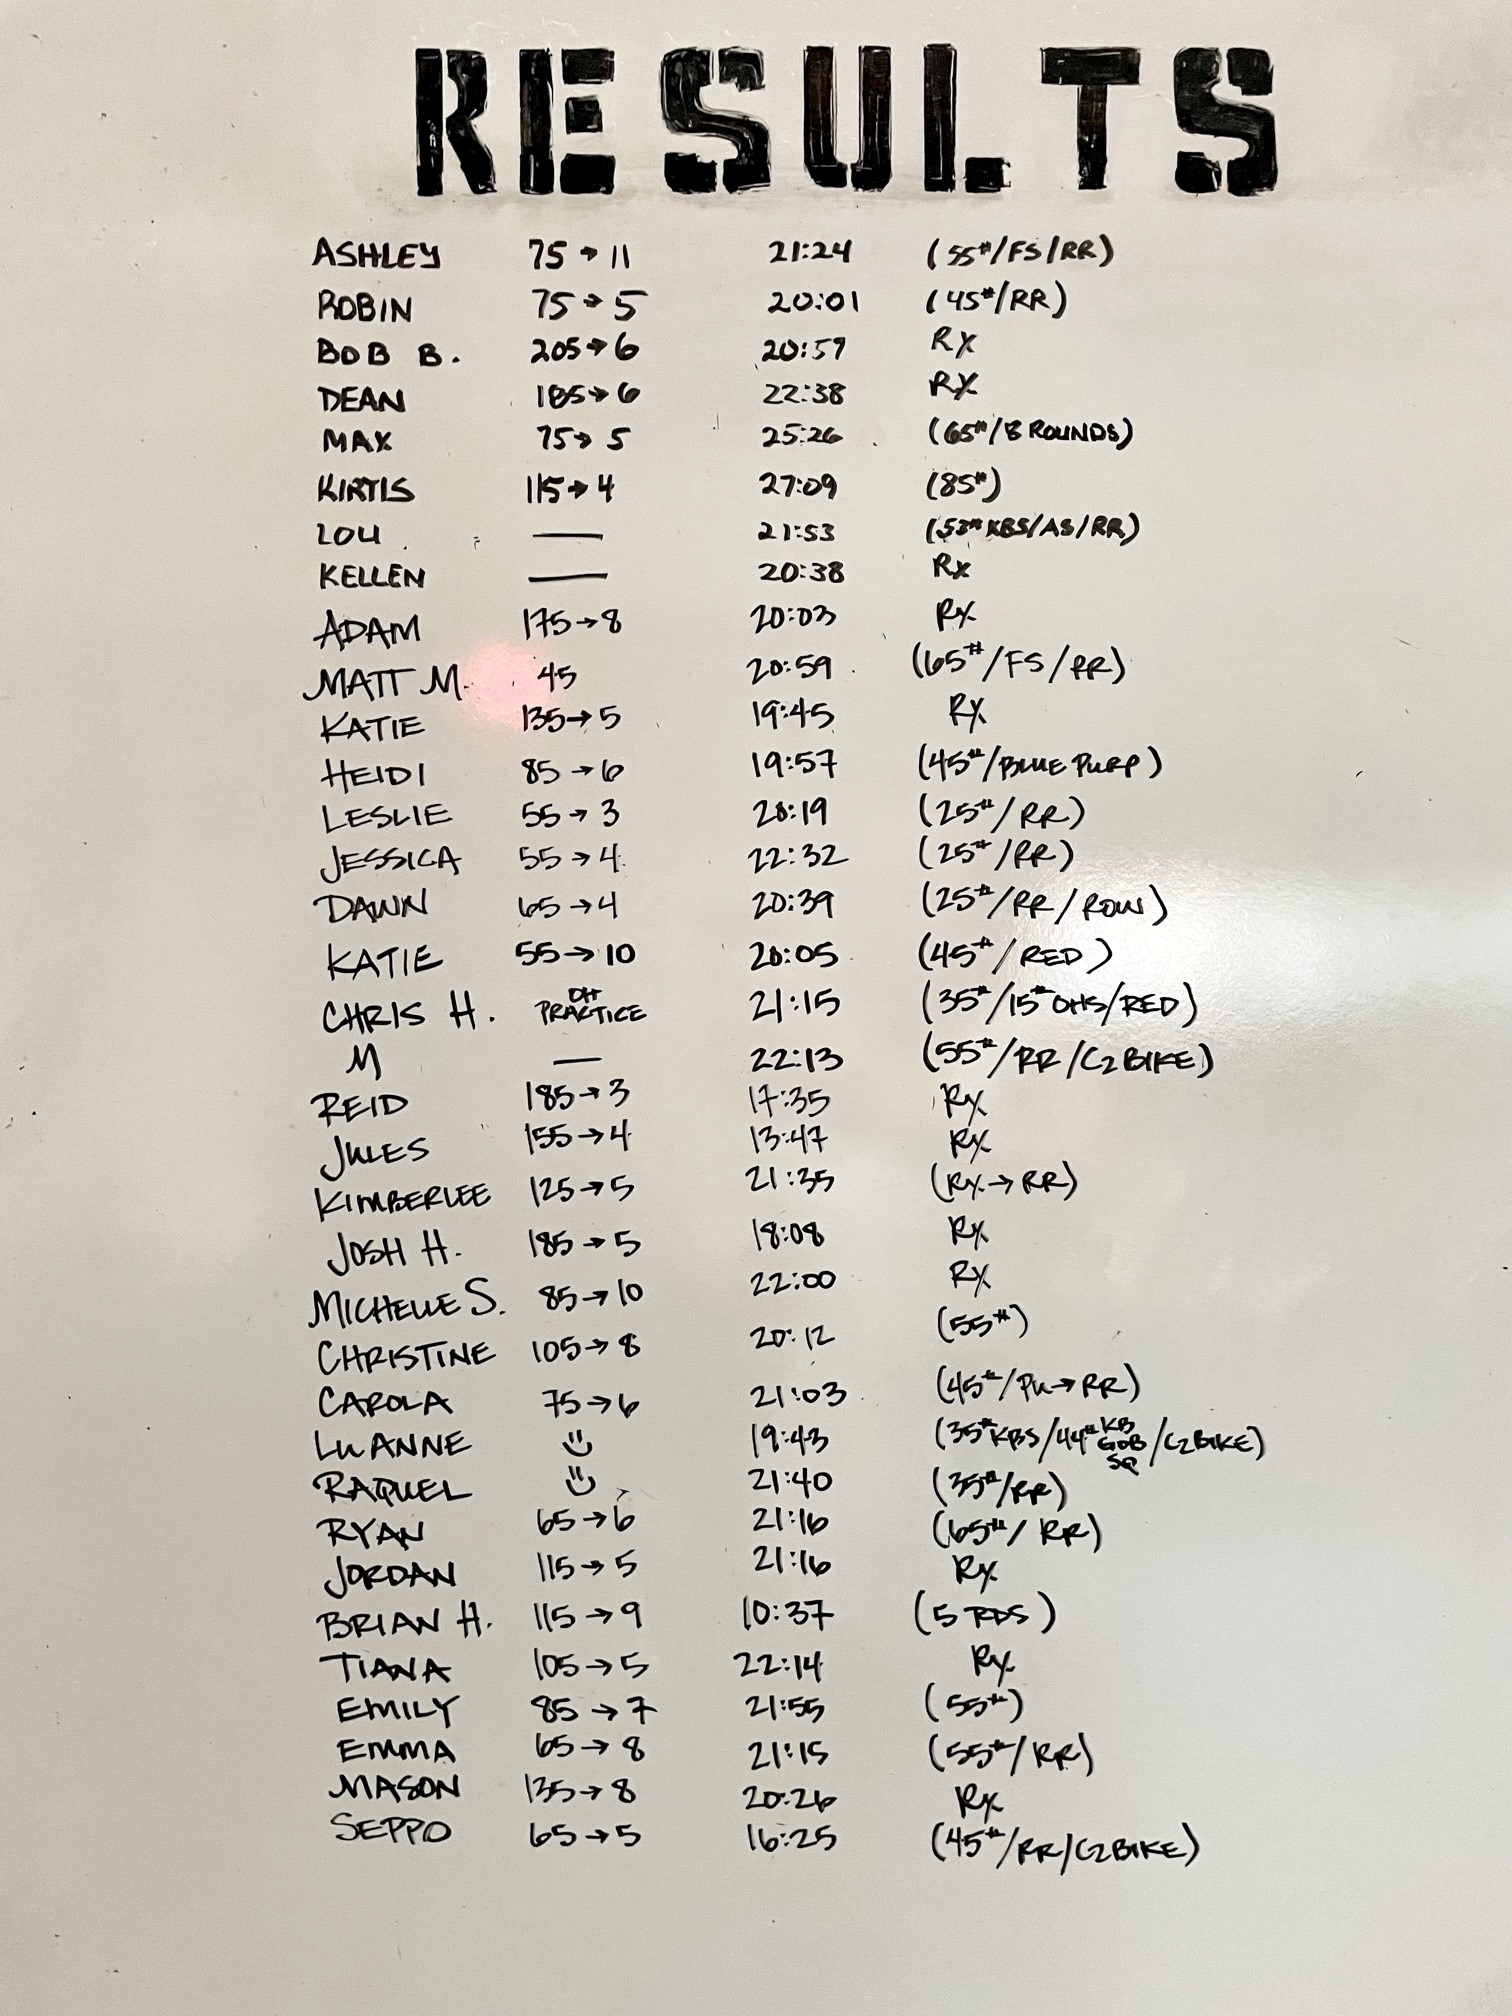 RESULTS
ASHLEY 75→11 21:24 (55#/FS/RR)
ROBIN 75→5 20:01 (45#/RR)
BOB B. 205→6 20:57 Rx
DEAN 185→6 22:38 Rx
MAX 75→5 25:26 (65#/8 ROUNDS)
KIRTIS 115→4 27:09 (85#)
LOU — 21:53 (53# KBS/AS/RR)
KELLEN — 20:38 Rx
ADAM 175→8 20:03 Rx
MATT M. 45 20:59 (65#/FS/RR)
KATIE 135→5 19:45 Rx
HEIDI 85→6 19:57 (45#/BLUE PURP)
LESLIE 55→3 20:19 (25#/RR)
JESSICA 55→4 22:32 (25#/RR)
DAWN 65→4 20:39 (25#/RR/ROW)
KATIE 55→10 20:05 (45#/RED)
CHRIS H. OH PRACTICE 21:15 (35#/15# OHS/RED)
M — 22:13 (55#/RR/C2 BIKE)
REID 185→3 17:35 Rx
JULES 155→4 13:47 Rx
KIMBERLEE 125→5 21:35 (Rx→RR)
JOSH H. 185→5 18:08 Rx
MICHELLE S. 85→10 22:00 Rx
CHRISTINE 105→8 20:12 (55#)
CAROLA 75→6 21:03 (45#/PU→RR)
LUANNE 19:43 (35# KBS/44# KB GOB SQ/C2 BIKE)
RAQUEL 21:40 (35#/RR)
RYAN 65→6 21:16 (65#/RR)
JORDAN 115→5 21:16 Rx
BRIAN H. 115→9 10:37 (5 RDS)
TIANA 105→5 22:14 Rx
EMILY 85→7 21:55 (55#)
EMMA 65→8 21:15 (55#/RR)
MASON 135→8 20:26 Rx
SEPPO 65→5 16:25 (45#/RR/C2 BIKE)